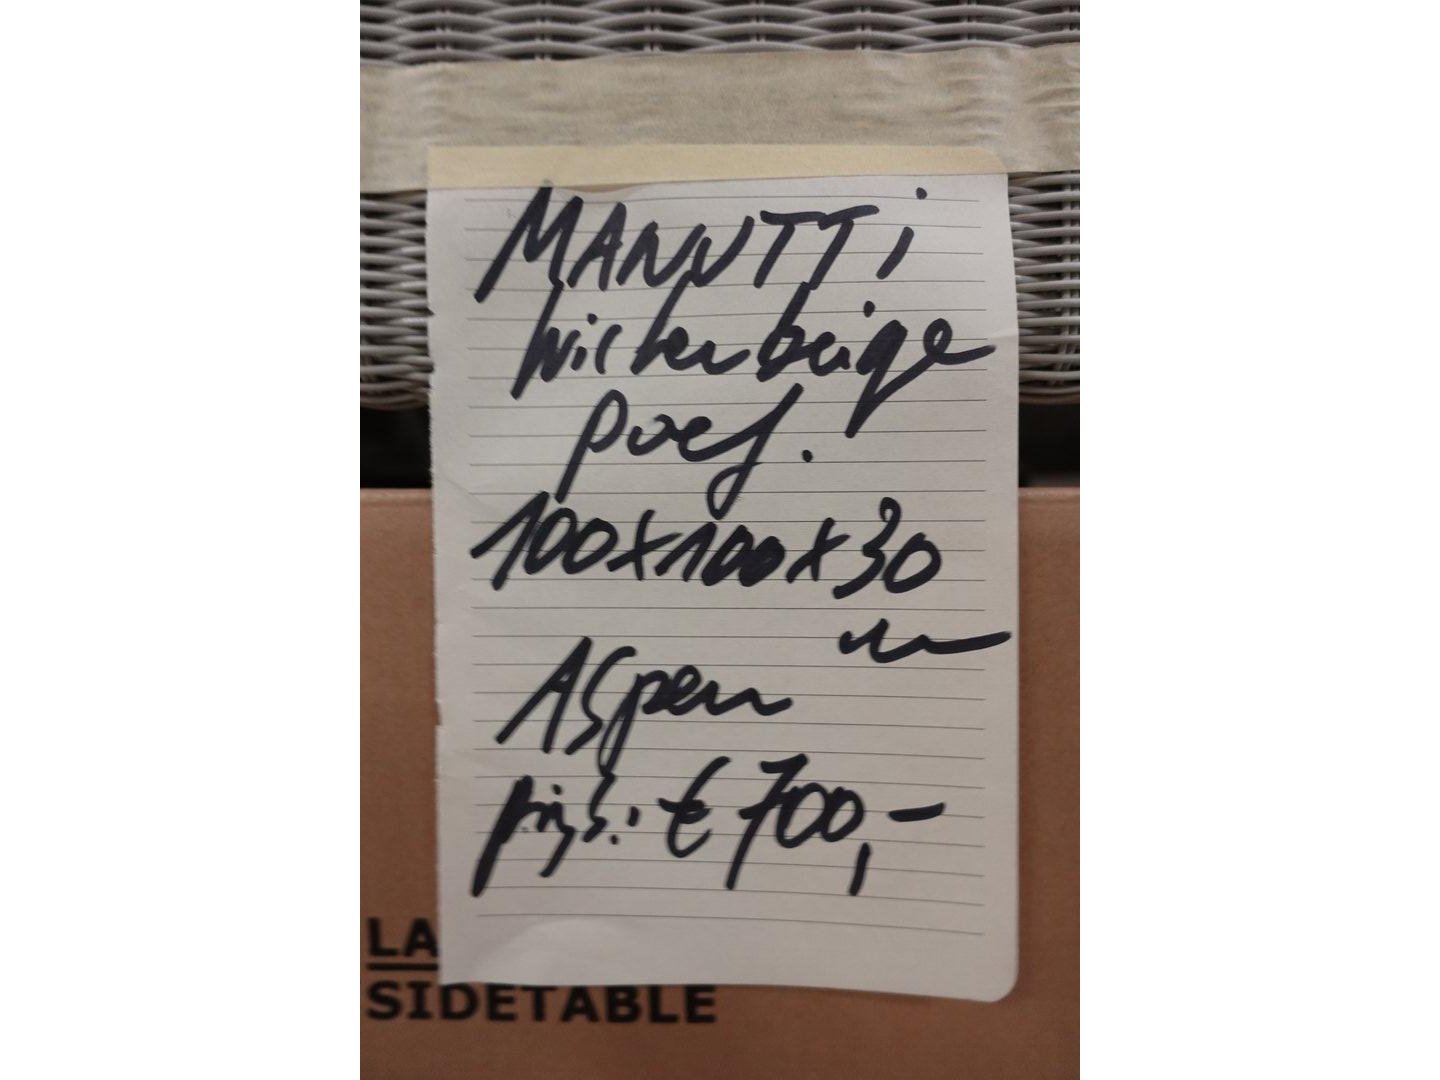 MANUTTi
wicker beige
poef.
100x100x30
Aspen
prijs: € 700,-
LA
SIDETABLE